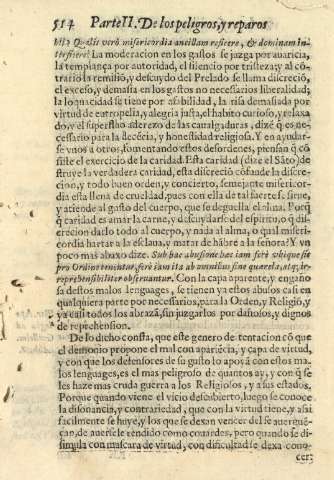 514 Parte II. De los peligros, y reparos
bilis? Qualis verò misericordia ancillam reficere, & dominam in-
terficere? La moderacion en los gastos se juzga por auaricia,
la templança por autoridad, el silencio por tristeza; y al cõ-
trario la remisiõ, y descuydo del Prelado se llama discreciõ,
el exceso, y demasia en los gastos no necessarios liberalidad,
la loquacidad se tiene por afabilidad, la risa demasiada por
virtud de eutropelia, y alegria justa, el habito curioso, y relaxa-
do, y el superfluo aderezo de las caualgaduras, dizẽ q̃ es ne-
cessario para la decẽcia, y honestidad religiosa. Y en ayudar-
se vnos a otros, fomentando estos desordenes, piensan q̃ cõ
siste el exercicio de la caridad. Esta caridad (dize el Sãto) de
struye la verdadera caridad, esta discreciõ cõfunde la discre-
cion, y todo buen orden, y concierto, semejante misericor-
dia està llena de crueldad, pues con ella de tal suerte se sirue,
y atiende al gusto del cuerpo, que se deguella el alma. Porq̃
q̃ caridad es amar la carne, y descuydarse del espiritu, o q̃ dis-
crecion darlo todo al cuerpo, y nada al alma, o qual miseri-
cordia hartar a la esclaua, y matar de hãbre a la señora? Y vn
poco mas abaxo dize. Sub hac abusione hac iam ferè vbique sic
pro Ordine tenentur, ferè iam ita ab omnibus sine querela, atq; ir-
reprehensibiliter obseruantur. Con la capa aparente, y engaño
sa destos malos lenguages, se tienen ya estos abusos casi en
qualquiera parte por necessarios, para la Orden, y Religiõ, y
ya casi todos los abrazã, sin juzgarlos por dañosos, y dignos
de reprehension.
De lo dicho consta, que este genero de tentacion cõ que
el demonio propone el mal con apariẽcia, y capa de virtud,
y con que los defensores de su gusto lo apoyã con estos ma-
los lenguages, es el mas peligroso de quantos ay, y con q̃ se
les haze mas cruda guerra a los Religiosos, y a sus estados.
Porque quando viene el vicio descubierto, luego se conoce
la disonancia, y contrariedad, que con la virtud tiene, y assi
facilmente se huye, y los que se dexan vencer del se auerguẽ-
çan, de auersele rendido como couardes, pero quando se di-
simula con mascara de virtud, con dificultad se dexa cono-
cer: